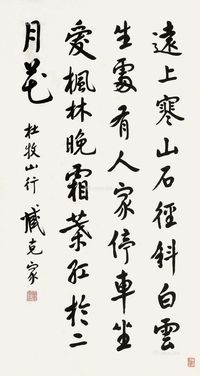 遠上寒山石徑斜白雲
生處有人家停車坐
愛楓林晚霜葉紅於二
月花
杜牧山行 臧克家